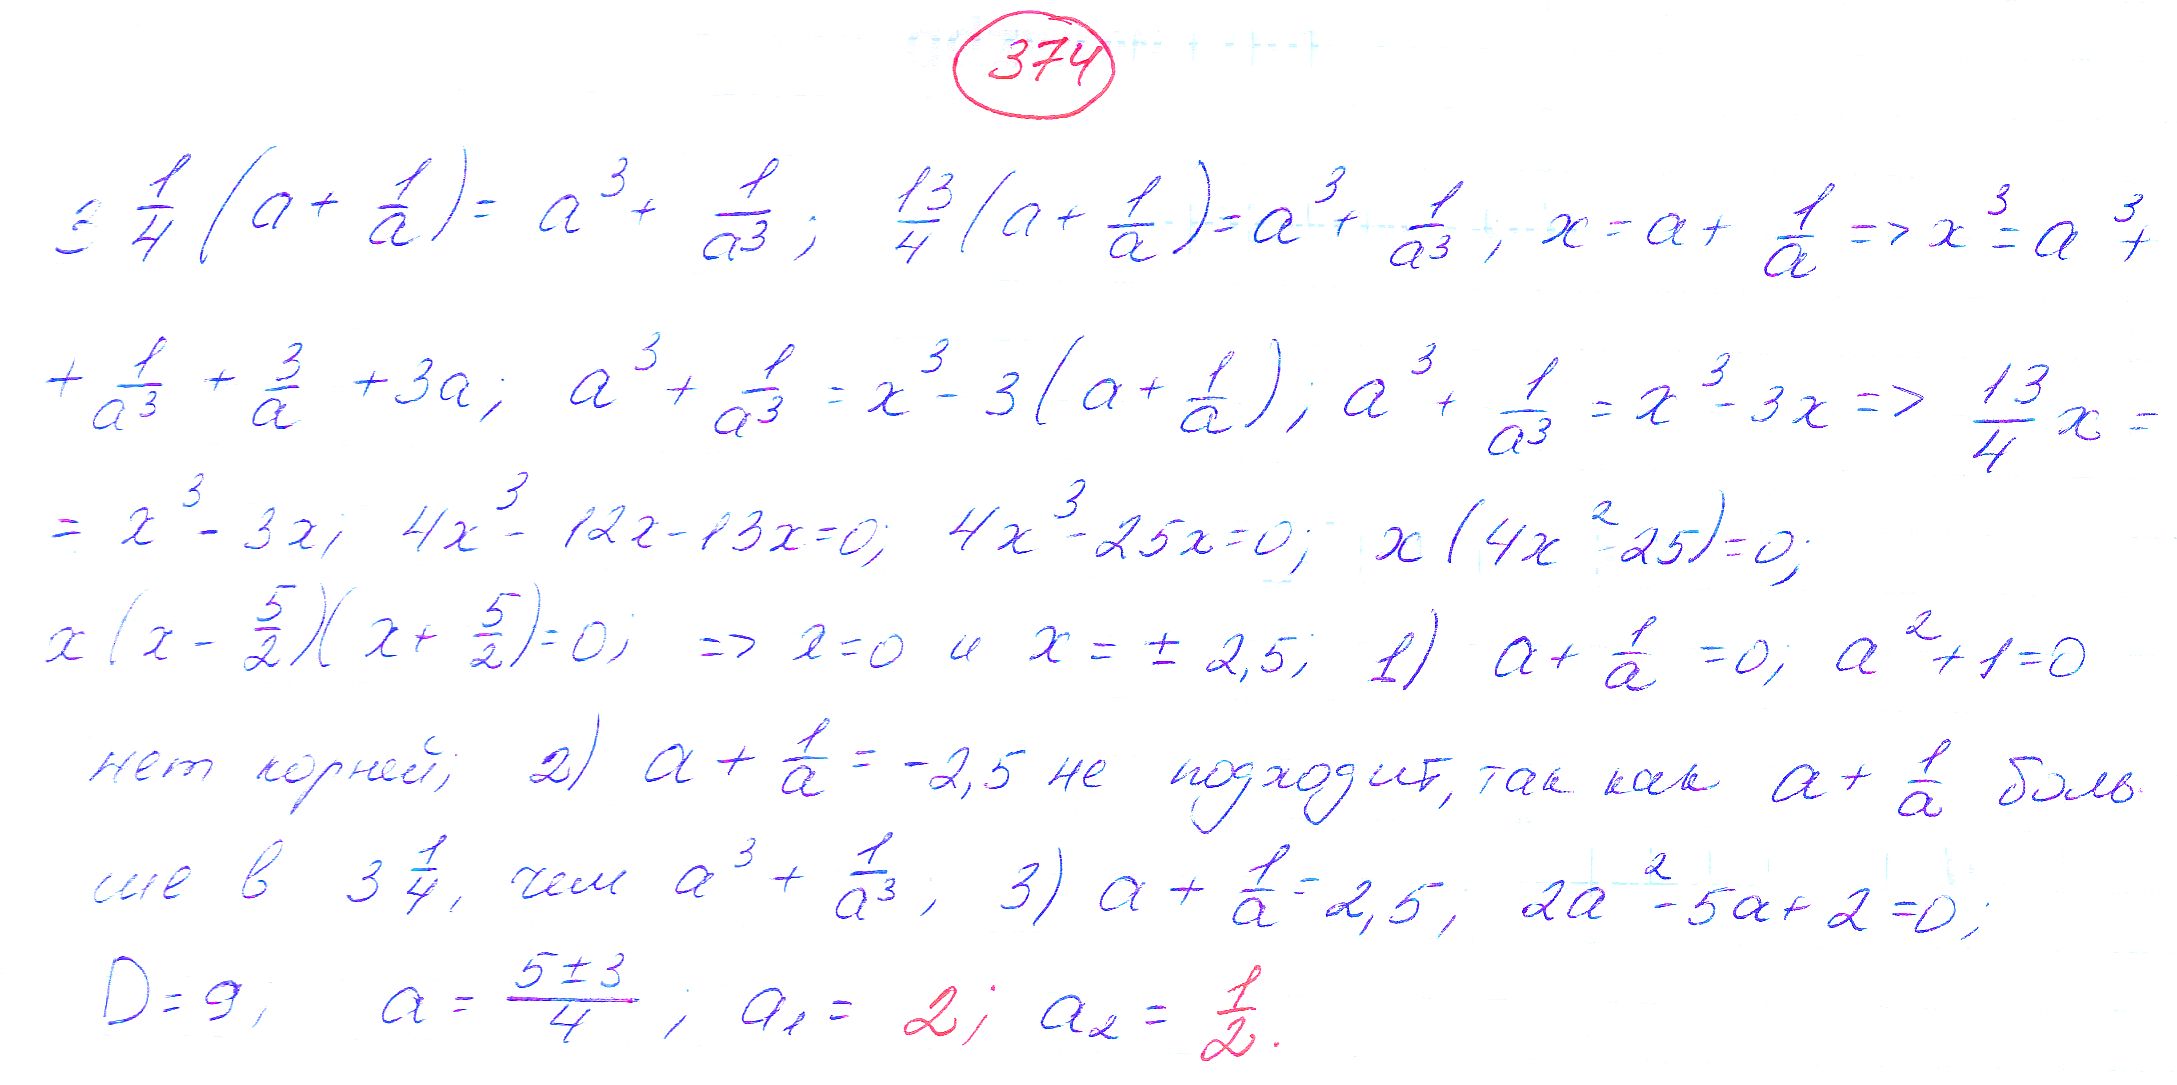 374
3 1/4 (a + 1/a) = a³ + 1/a³; 13/4 (a + 1/a) = a³ + 1/a³, x = a + 1/a => x³ = a³ +
+ 1/a³ + 3/a + 3a; a³ + 1/a³ = x³ - 3(a + 1/a); a³ + 1/a³ = x³ - 3x => 13/4 x =
= x³ - 3x; 4x³ - 12x - 13x = 0; 4x³ - 25x = 0; x(4x² - 25) = 0;
x(x - 5/2)(x + 5/2) = 0; => x = 0 и x = ± 2,5; 1) a + 1/a = 0; a² + 1 = 0
нет корней; 2) a + 1/a = -2,5 не подходит, так как a + 1/a боль-
ше в 3 1/4, чем a³ + 1/a³, 3) a + 1/a = 2,5, 2a² - 5a + 2 = 0;
D = 9, a = (5 ± 3)/4; a₁ = 2; a₂ = 1/2.